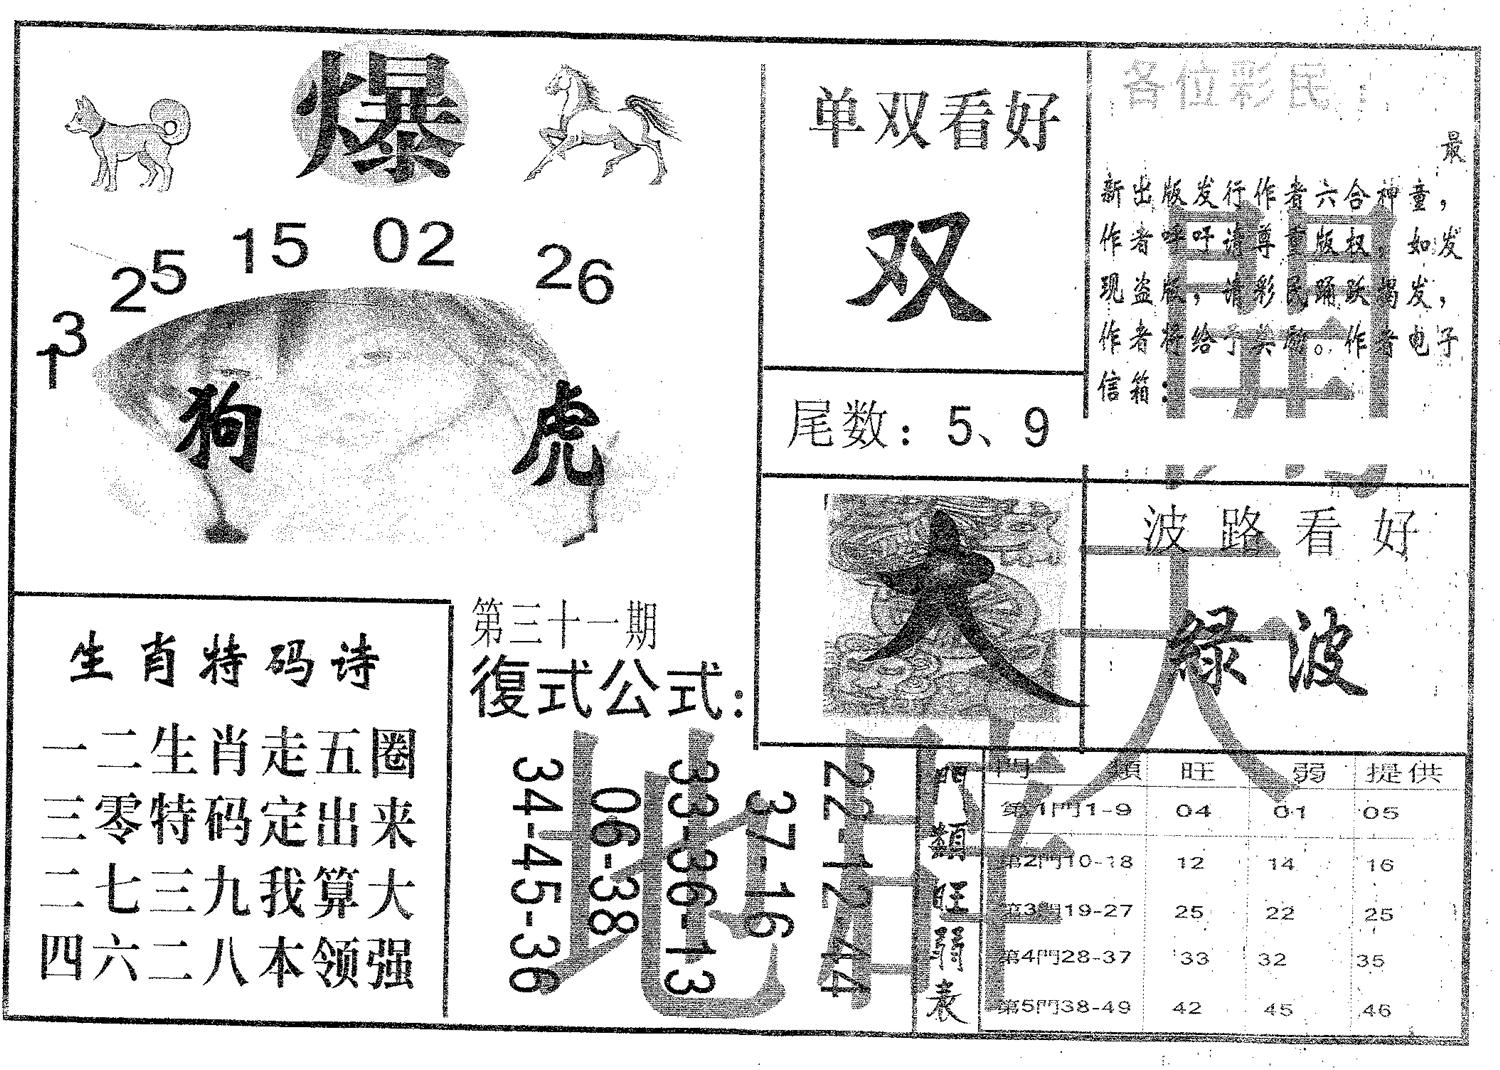 爆
25 15 02 26
13
狗 虎
单双看好
双
尾数：5、9
各位彩民：
最
新出版发行作者六合神童，
作者呼吁请尊重版权，如发
现盗版，请彩民踊跃揭发，
作者将给予奖励。作者电子
信箱：
大
波路看好
绿波
生肖特码诗
一二生肖走五圈
三零特码定出来
二七三九我算大
四六二八本领强
第三十一期
復式公式：
22-12-44
37-16
33-36-13
06-38
34-45-36
門類旺弱表
門類 旺 弱 提供
第1門1-9 04 01 05
第2門10-18 12 14 16
第3門19-27 25 22 25
第4門28-37 33 32 35
第5門38-49 42 45 46